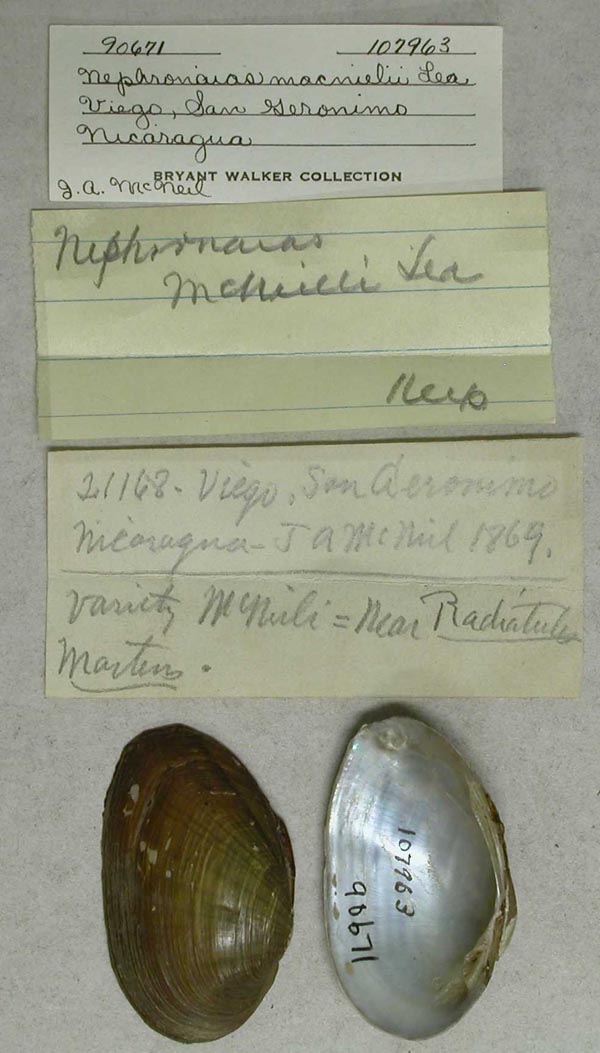 90671 107963
Nephronaias macnielii Lea
Viego, San Geronimo
Nicaragua
BRYANT WALKER COLLECTION
J. A. McNeil
Nephronaias
McNeilli Lea
Keep
21168 - Viego, San Geronimo
Nicaragua - J A McNiel 1869.
Variety McNieli = Near Radiatula
Martens.
107963
90671